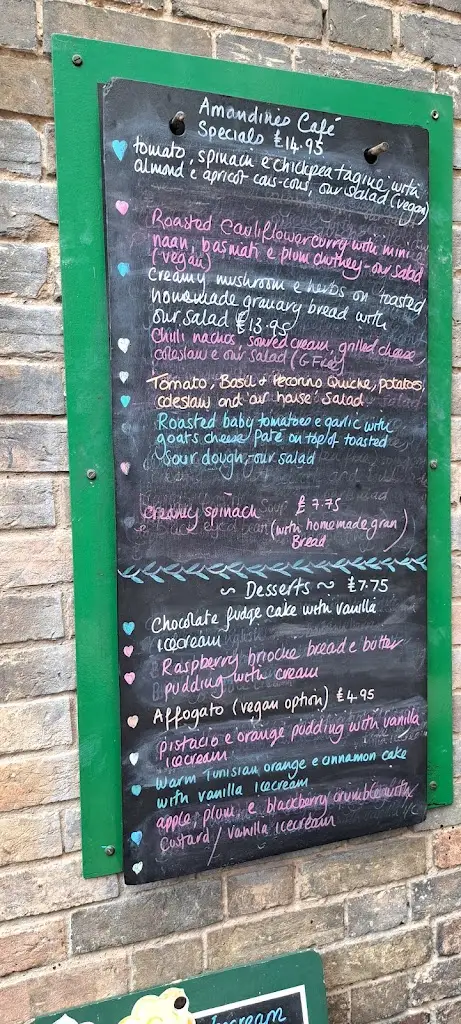 Amandines Café
Specials £14.95
tomato, spinach e chickpea tagine with
almond e apricot cous-cous, our salad (vegan)
Roasted Cauliflower curry with mini
naan, basmati e plum chutney - our salad
(vegan)
Creamy mushroom e herbs on toasted
homemade granary bread with
our salad £13.95
Chilli nachos, soured cream, grilled cheese,
coleslaw e our salad (G Free)
Tomato, Basil + Pecorino Quiche, potatoes,
coleslaw and our house salad
Roasted baby tomatoes e garlic with
goats cheese Paté on top of toasted
sour dough, our salad
Creamy spinach £7.75
e black eyed bean (with homemade gran
Bread)
~ Desserts ~ £7.75
Chocolate fudge cake with vanilla
icecream
Raspberry brioche bread e butter
pudding with cream
Affogato (vegan option) £4.95
pistacio e orange pudding with vanilla
icecream
Warm Tunisian orange e cinnamon cake
with vanilla icecream
apple, plum, e blackberry crumble with
custard / vanilla icecream
Icecream